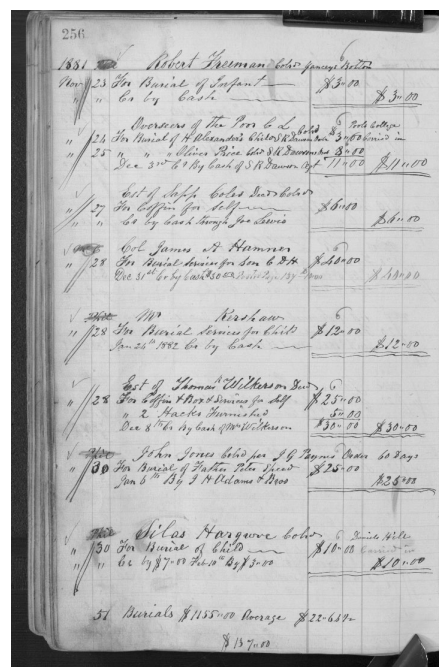 256
1881 Robert Freeman Cold Bottom
Nov 23 For Burial of Infant $3.00
" " Cr by Cash $3.00
Overseers of the Poor Cold
" 24 For Burial of H Alexanders Child $3.00
" 25 " " " Oliver Price Cold S R Dawson 8.00
Dec 3rd Cr By Cash of S R Dawson Agt 11.00 $11.00
Est of Sapp Coles Decd Cold
" 27 For Coffin for Self $6.00
" " Cr by Cash through Joe Lewis $6.00
Col James A Hamner
" 28 For Burial Services for Son C D H $40.00
Dec 31st Cr by Cash $30.00 $40.00
Mr Kershaw
" 28 For Burial Services for Child $12.00
Jan 24th 1882 Cr by Cash $12.00
Est of Thomas Wilkerson Decd
" 28 For Coffin & Box & Services for Self $25.00
" 2 Hacks Furnished 5.00
Dec 8th Cr By Cash of Mrs Wilkerson $30.00 $30.00
John Jones Cold per J G Paynes Order 60 Days
" 30 For Burial of Father Peter $25.00
Jan 6th By J H Adams & Bros $25.00
Silas Hargrove Cold
" 30 For Burial of Child $10.00
" " Cr by $7.00 Feb 10th By $3.00 $10.00
51 Burials $1155.00 Average $22.65
$137.00